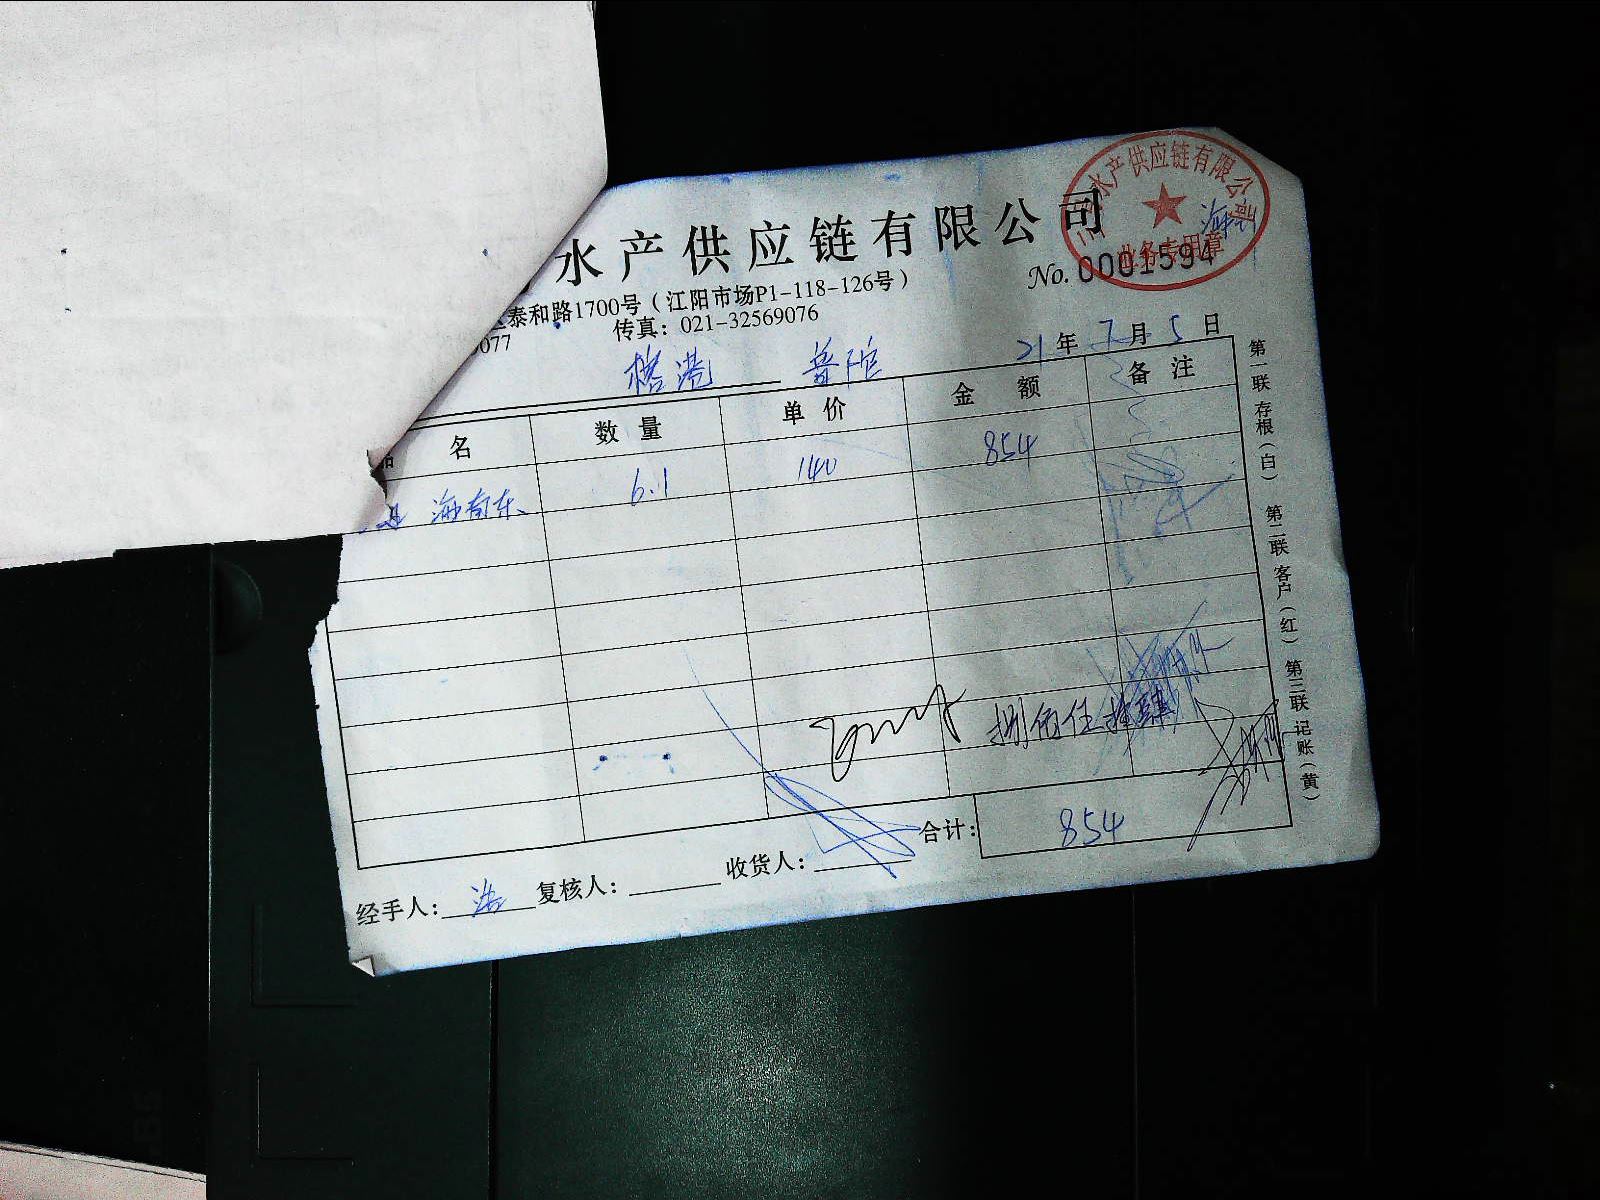 水产供应链有限公司
水产供应链有限公司
业务专用章
泰和路1700号（江阳市场P1-118-126号）
No. 0001594
077 传真：021-32569076
普陀 21年7月5日
名 数量 单价 金额 备注
海南东 6.1 140 854
捌佰伍拾肆
合计：854
经手人： 复核人： 收货人：
第一联 存根（白） 第二联 客户（红） 第三联 记账（黄）